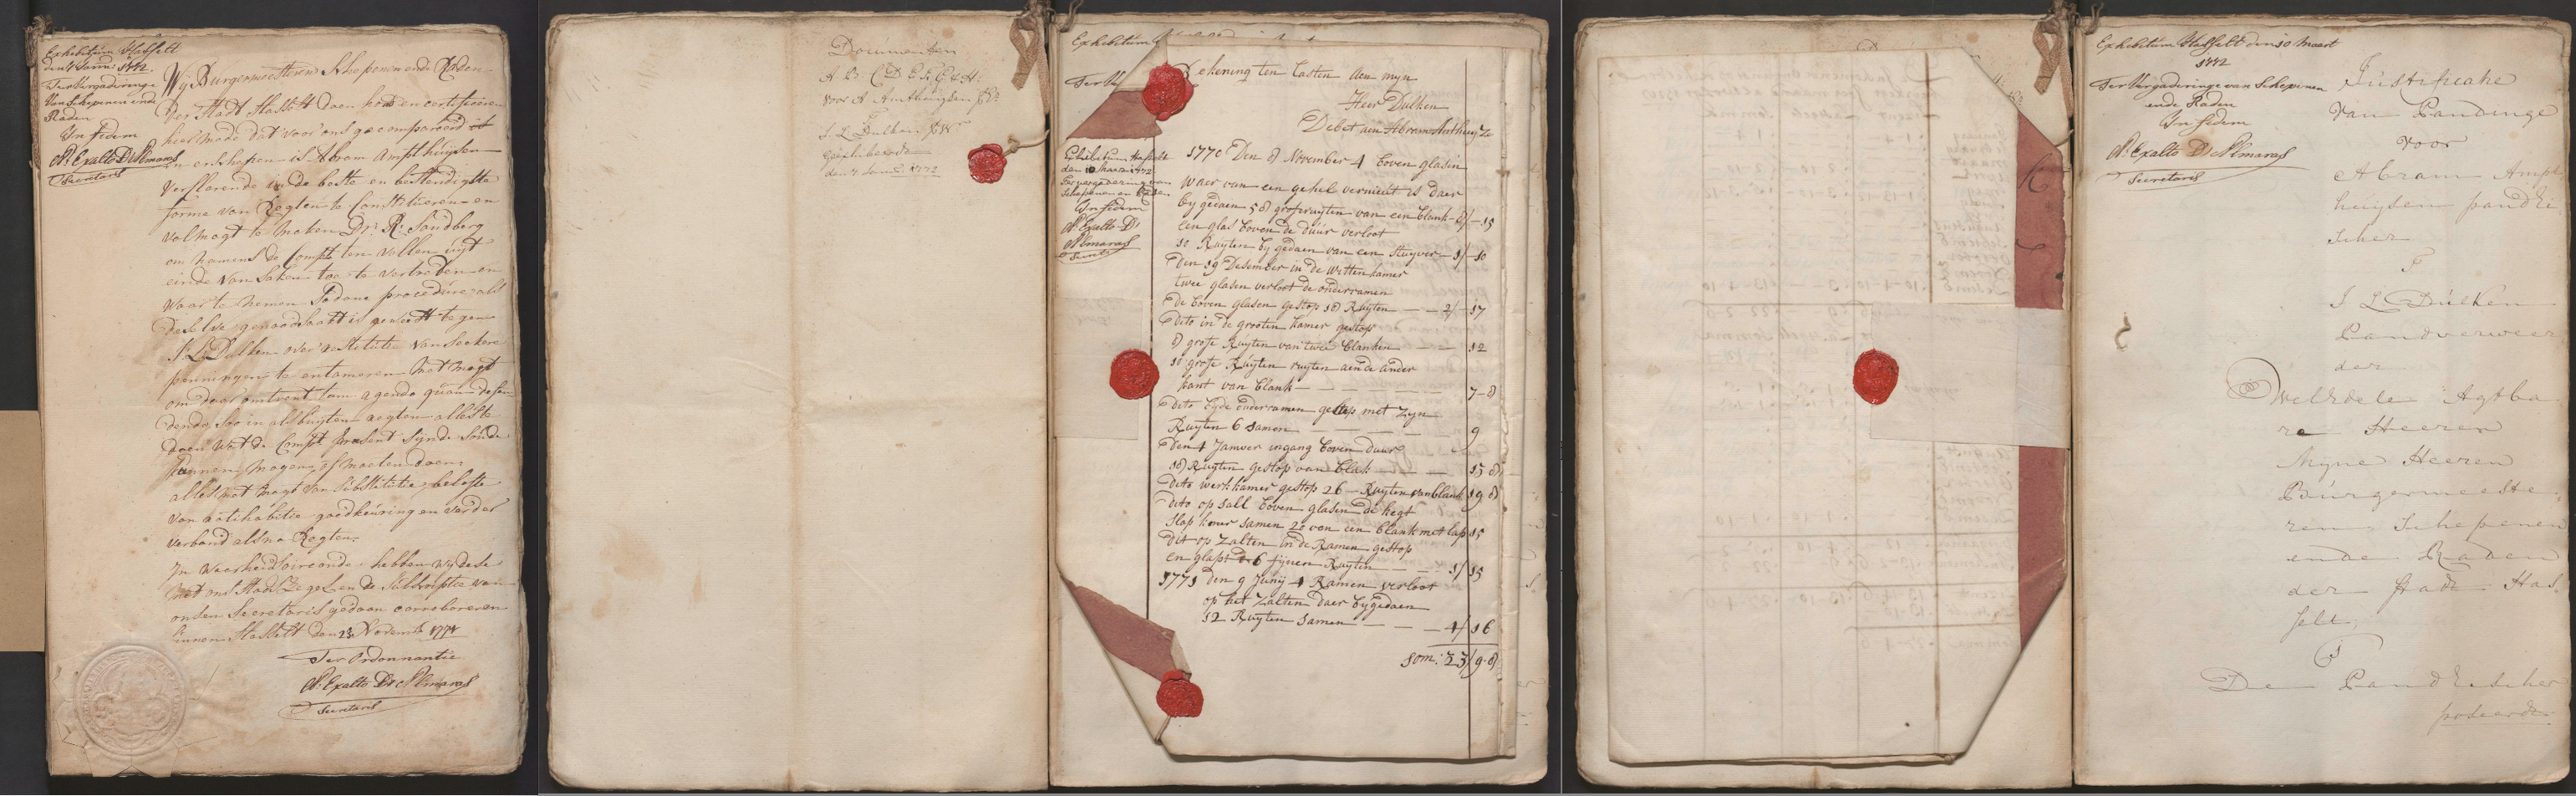 Exhibitum Hasselt
den 7 Janu: 1772.
Ter Vergaderinge
Van Schepenen ende
Raden
In fidem
N: Exalto D'Almaras
Secretaris
Wij Burgermeesteren Schepenen ende Raden
der Stadt Hasselt doen kond en certificeren
hier mede dat voor ons gecompareerd is
en erschenen is Abram Ampthuijsen
versterende in de beste en bestendigste
forme van Regten te Constitueren en
volmagt te maken Dr. R: Sandberg
om namens de Compt ten vollen uijt
einde van saken toe te vertreden en
waar te nemen sodane procedure als
deselve genoodsaakt is geweest tegen
J: L: Dulken over restitutie van seekere
penningen te entameren Met magt
om daar omtrent tam agendo quam defen
dendo, soo in als buyten regten alles te
doen wat de Compt present sijnde soude
kunnen mogen of moeten doen,
alles met magt van substitutie, belofte
van ratihabitie goedkeuring en verder
verband als na Regten.
In Waarheids oirconde hebben wij dese
met ons Stads Zegel en de Subscriptie van
onsen Secretaris gedaan corroboreren
binnen Hasselt den 23 Novemb 1771
Ter Ordonnantie
N: Exalto D'Almaras
Secretaris
Documenten
A. B: C D E F: G & H:
voor A Amthuijsen
J. L Dulken
geexhibeerd
den 7 Janu: 1772
Exhibitum
Ter
Exhibitum Hasselt
den 10 Maart 1772
Ter vergadering van
Schepenen en Raden
In fidem
N: Exalto D'
Almaras
Secrets
Rekening ten lasten Aen myn
Heer Dulken
Debet aen Abram Anthuyze
1770 Den 8 November 4 boven glasin
Waer van een gehel vernieut is daer
by gedaen 58 grofe ruyten van een blank - 8/-15
een glas boven de duur verloot
10 Ruyten by gedaen van een stuyver - 1/-10
Den 19 Desember in de Witten kamer
twee glasen verloot de onderramen
de boven glasen gestop 18 Ruyten - - 2/-17
dito in de grooten kamer gestop
8 grofe Ruyten van twee blanken - - 12
10 grofe Ruyten ruyten aen de ander
kant van blank - - - - 7-8
dito byde onderramen gestop met zyn
Ruyten 6 samen - - - - 9
Den 4 Januer ingang boven duur
18 Ruyten gestop van blak - - - 15 8
dito werkkamer gestop 26 - Ruyten van blank 19 8
dito op sall boven glasen de hegt
slap kamer samen 20 van een blank met lap 15
dit op Zalten in de Ramen gestop
en glast 6 fijnen Ruyten - - 1/15
1771 den 9 Junij 4 Ramen verloot
op het Zalten daer bygedaen
12 Ruyten samen - - - 4/16
som: 23/9-8
Exhibitum Hasselt den 10 Maart
1772
Ter Vergaderinge van Schepenen
ende Raden
In fidem
N: Exalto D'Almaras
Secretaris
Justificatie
van Pandinge
voor
Abram Ampt
huijsen pandEi
scher
T
J L Dulken
Pandverweer
der
Wel Edele Agtba
re Heeren
Myne Heeren
Burgermeeste
ren, Schepenen
ende Raden
der stadt Has
selt,
De PandEischer